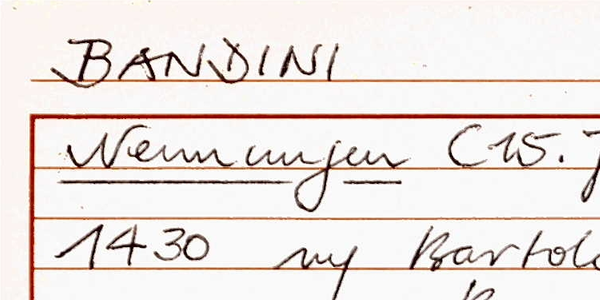 BANDINI
Nennungen (15.
1430 ny Bartol